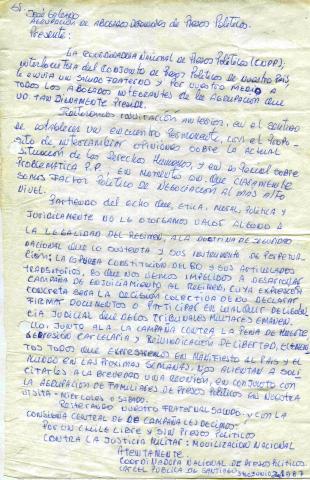 Sr.
José Galiano
Agrupación de Abogados Defensores de Presos Políticos.
Presente:
La Coordinadora Nacional de Presos Políticos (CNPP),
interlocutora del conjunto de Presos Políticos de nuestro país,
le envía un saludo fraterno y por vuestro medio a
todos los abogados integrantes de la Agrupación que
Ud. tan dignamente preside.
Reiteramos invitación anterior, en el sentido
de establecer un encuentro permanente, con el propó-
sito de intercambiar opiniones sobre la actual
situación de los Derechos Humanos, y en especial sobre
problemática P.P., en momentos en que claramente
somos factor político de negociación al más alto
nivel.
Partiendo del echo que, etica, moral, politica y
juridicamente no le otorgamos valor alguno a
la legalidad del regimen, a la doctrina de seguridad
nacional que lo sustenta y sus instrumentos de perpetua-
ción; la espuria constitución del 80 y sus articulados
transitorios, es que nos hemos impelido a desarrollar
campaña de enjuiciamiento al regimen, cuya expresión
concreta será la decisión colectiva de no declarar
firmar documentos o participar en cualquier diligen-
cia judicial que de los tribunales militares emanen.
junto a la campaña contra la pena de muerte
represión carcelaria y reivindicación de libertad, elemen-
tos todos que expresaremos en manifiesto al país y el
mundo en las próximas semanas, nos alientan a soli-
citarles a la brevedad una reunión, en conjunto con
la Agrupación de Familiares de Presos Políticos en nuestra
visita - miercoles o sabado.
Reiterando nuestro fraternal saludo y con la
consigna central de campaña les decimos:
Por un Chile libre y sin presos políticos
Contra la justicia militar: movilización nacional
Atentamente
Coordinadora Nacional de Presos Políticos
Carcel Publica de Santiago 1987